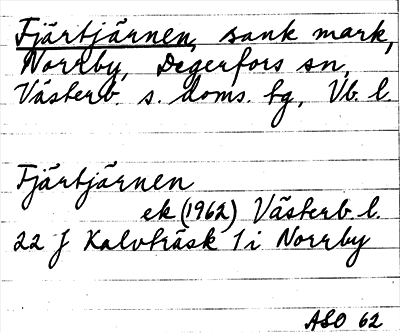 Fjärtjärnen, sank mark,
Norrby, Degerfors sn,
Västerb. s. doms. tg, Vb. l.
Fjärtjärnen
ek (1962) Västerb. l.
22 J Kalvträsk 1 i Norrby
ASO 62